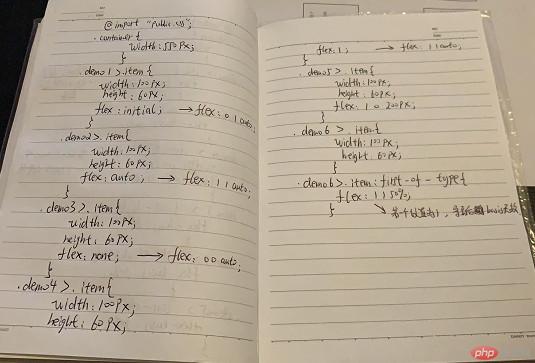 @import "public.css";
.container{
width:550px;
}
.demo1>.item{
width:100px;
height:60px;
flex:initial; →flex:0 1 auto;
}
.demo2>.item{
width:100px;
height:60px;
flex:auto; → flex:1 1 auto;
}
.demo3>.item{
width:100px;
height:60px;
flex:none; → flex:0 0 auto;
}
.demo4>.item{
width:100px;
height:60px;
flex:1; → flex:1 1 auto;
}
.demo5>.item{
width:100px;
height:60px;
flex:1 0 200px;
}
.demo6>.item{
width:100px;
height:60px;
}
.demo6>.item:first-of-type{
flex:1 1 50%;
}
php